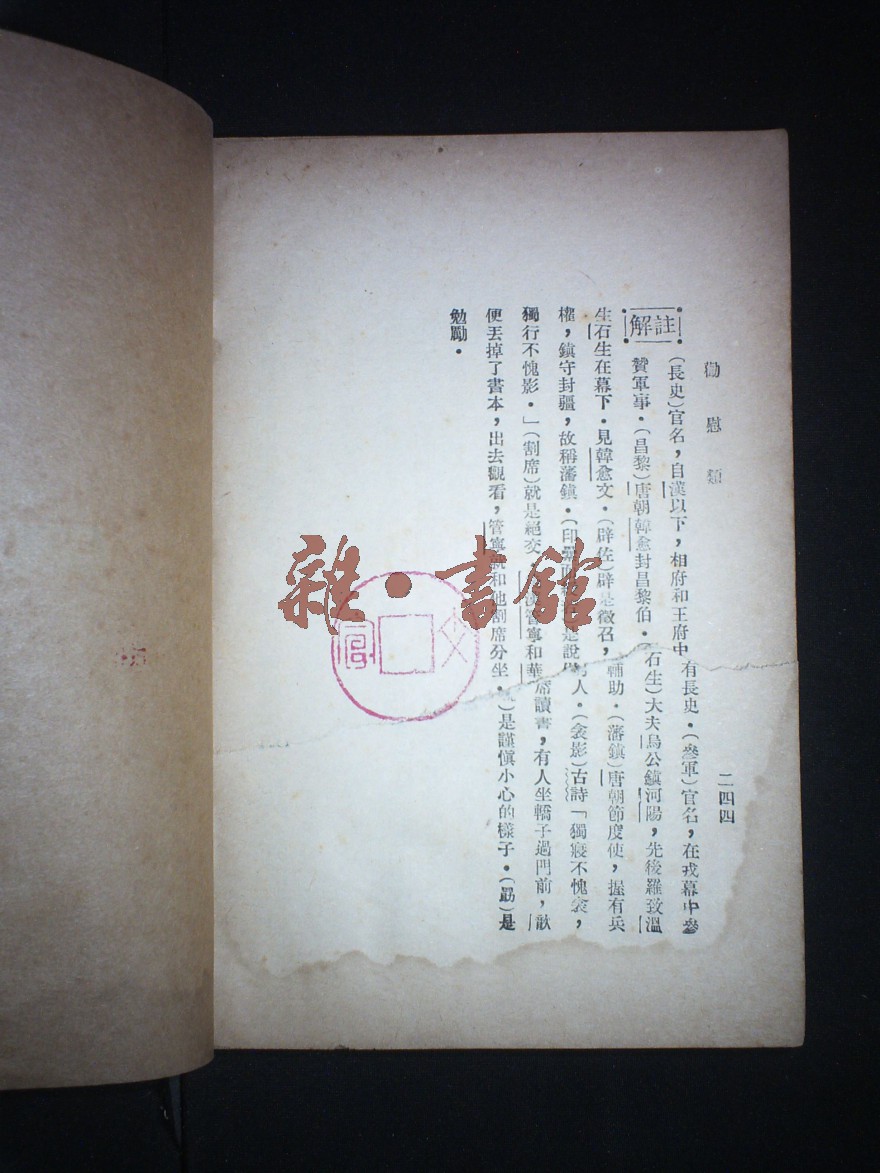 勸慰類
二四四
註解
(長史)官名,自漢以下,相府和王府中有長史.(參軍)官名,在戎幕中參
贊軍事.(昌黎)唐朝韓愈封昌黎伯.(石生)大夫烏公鎮河陽,先後羅致溫
生石生在幕下.見韓愈文.(辟佐)辟是徵召,輔助.(藩鎮)唐朝節度使,握有兵
權,鎮守封疆,故稱藩鎮.(印是說人.(衾影)古詩「獨寢不愧衾,
獨行不愧影.」(割席)就是絕交管寧和華席讀書,有人坐轎子過門前,歆
便丟掉了書本,出去觀看,管寧就和他割席分坐.)是謹愼小心的樣子.(勗)是
勉勵.
雜·書館